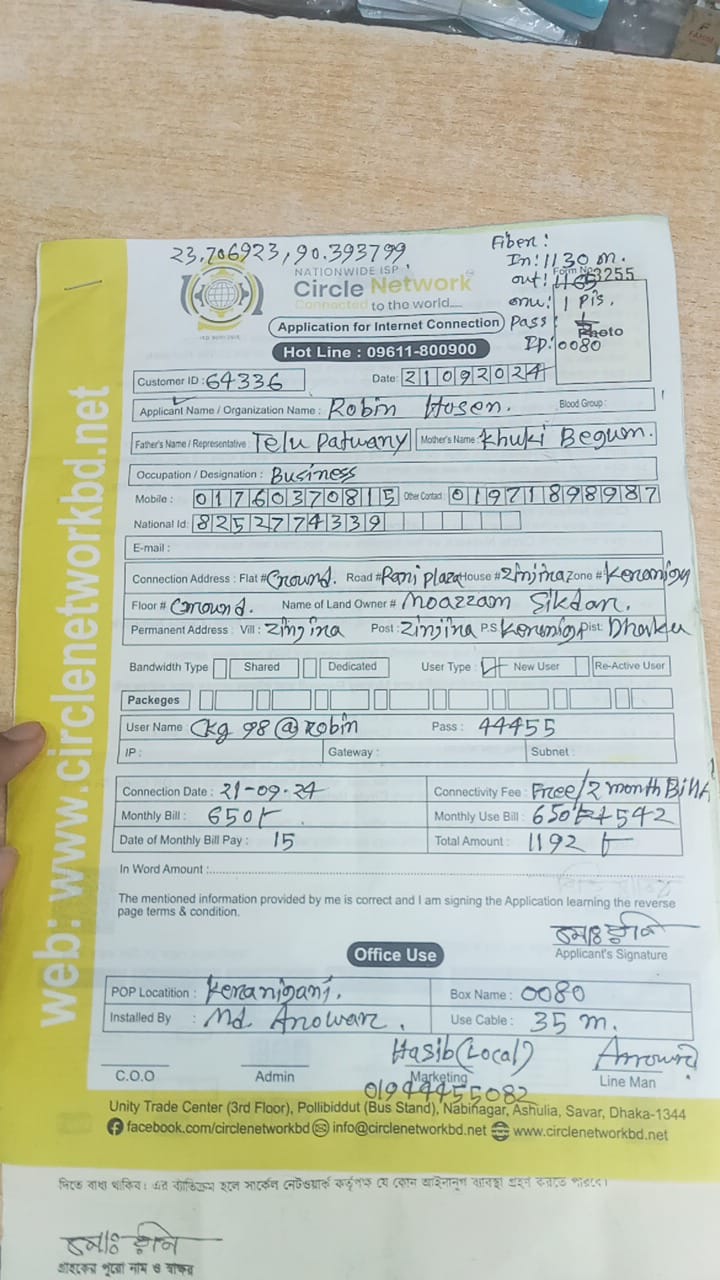 23.706923,90.393799
Fiber:
In:1130 m.
out: 1165
onu: 1 pis.
Pass:
ID:0080
Form No 3255
Photo
NATIONWIDE ISP
Circle Network
Connected to the world....
Application for Internet Connection
Hot Line : 09611-800900
Customer ID : 64336 Date: 21092024
Applicant Name / Organization Name : Robin Hosen. Blood Group :
Father's Name / Representative : Telu Patwary Mother's Name : Khuki Begum.
Occupation / Designation : Business
Mobile : 01760370815 Other Contact : 01971898987
National Id: 8252774339
E-mail :
Connection Address : Flat # Ground. Road # Rani plaza House # Zinjira Zone # Keranigon
Floor # Ground. Name of Land Owner # Moazzam Sikdar.
Permanent Address : Vill : Zinjira Post : Zinjira P.S Keranigo Dist: Dhaka
Bandwidth Type Shared Dedicated User Type : New User Re-Active User
Packeges
User Name : Ckg 98@Robin Pass : 44455
IP : Gateway : Subnet :
Connection Date : 21-09-24 Connectivity Fee : Free/2 month Bill
Monthly Bill : 650/- Monthly Use Bill : 650+542
Date of Monthly Bill Pay : 15 Total Amount : 1192/-
In Word Amount :
The mentioned information provided by me is correct and I am signing the Application learning the reverse
page terms & condition.
Applicant's Signature
Office Use
POP Locatition : Keraniganj. Box Name : 0080
Installed By : Md. Anowar. Use Cable : 35 m.
Hasib(Local)
C.O.O Admin Marketing Line Man
01944455082
Unity Trade Center (3rd Floor), Pollibiddut (Bus Stand), Nabinagar, Ashulia, Savar, Dhaka-1344
facebook.com/circlenetworkbd info@circlenetworkbd.net www.circlenetworkbd.net
web: www.circlenetworkbd.net
দিতে বাধ্য থাকিব। এর ব্যতিক্রম হলে সার্কেল নেটওয়ার্ক কর্তৃপক্ষ যে কোন আইনানুগ ব্যবস্থা গ্রহন করতে পারবে।
গ্রাহকের পুরো নাম ও স্বাক্ষর